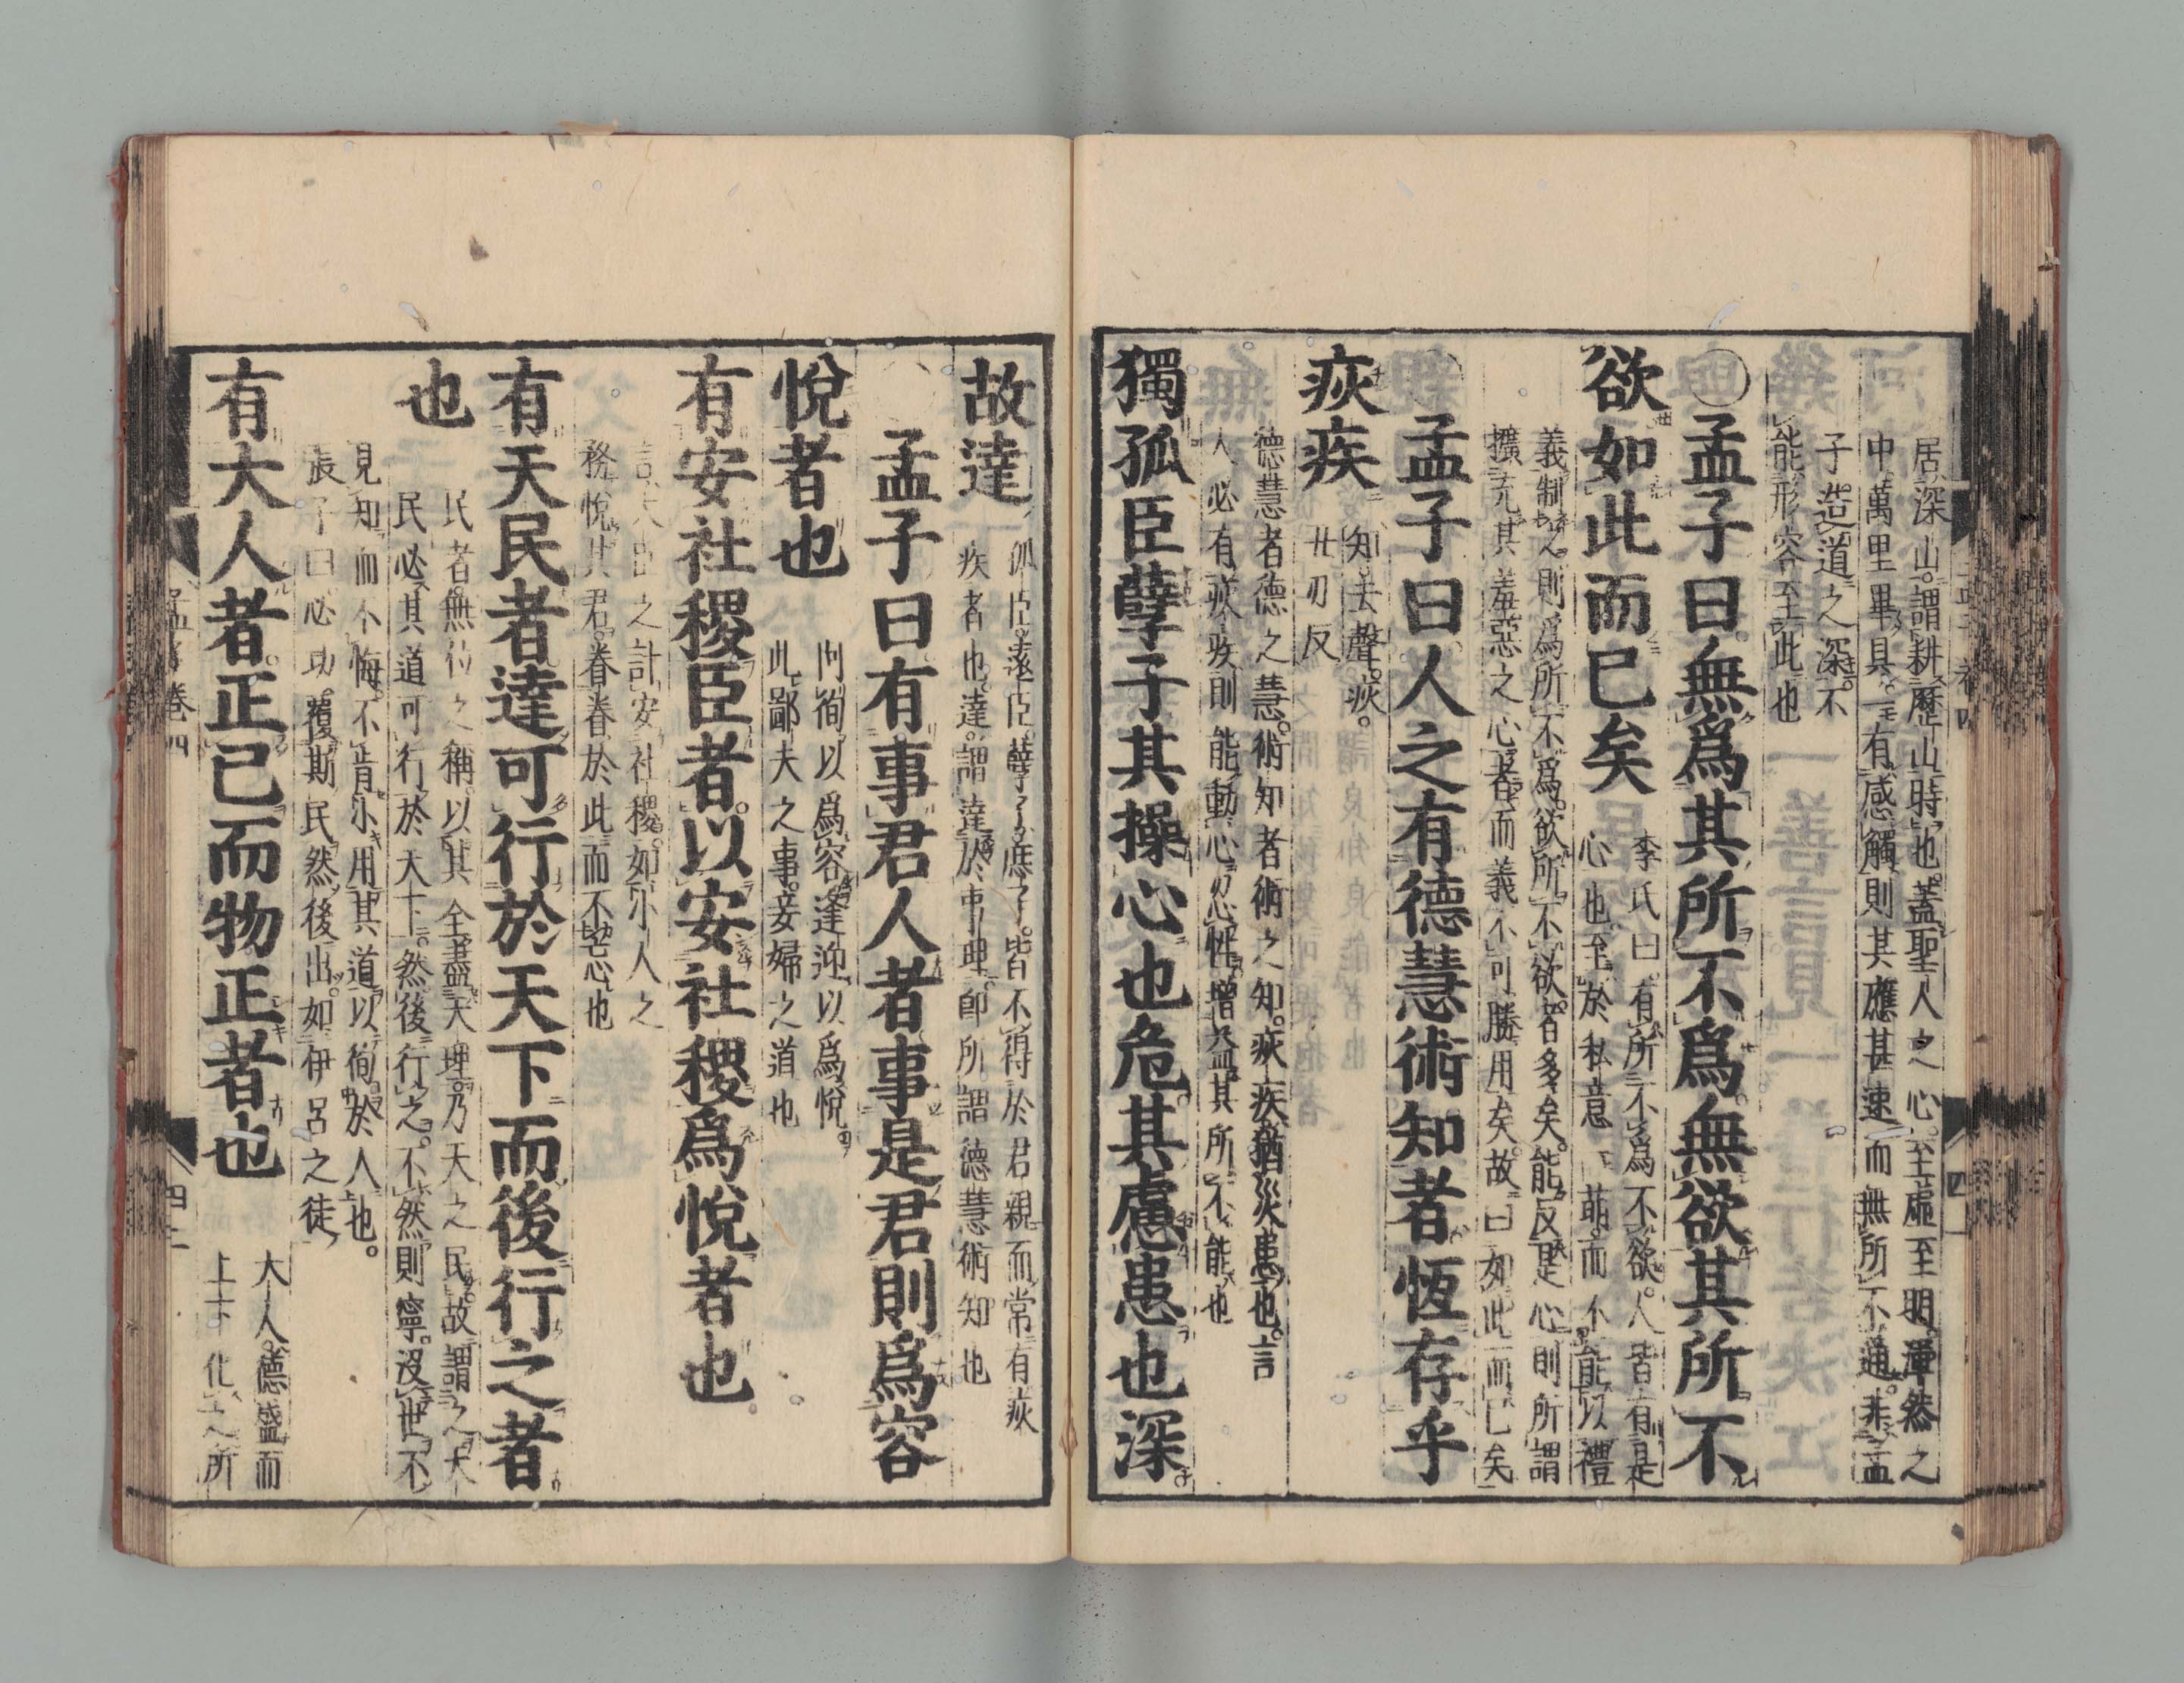 居深山。謂耕歷山時也。蓋聖人之心。至虛至明。渾然之
中萬里畢具。一有感觸則其應甚速而無所不通。非孟
子造道之深。不
能形容至此也
○孟子曰。無爲其所不爲。無欲其所不
欲如此而已矣
李氏曰。有所不爲不欲。人皆有是
心也至於私意一萌。而不能以禮
義制之。則爲所不爲。欲所不欲者多矣。能反是心則所謂
擴充其羞惡之心者。而義不可勝用矣。故曰如此而已矣
○孟子曰人之有德慧術知者恆存乎
疢疾
知。去聲。疢。
丑刃反
德慧者德之慧。術知者術之知。疢疾猶災患也。言
人必有疢疾則能動心忍性增益其所不能也
獨孤臣孽子其操心也危其慮患也深
故達
孤臣。遠臣。孽子庶子。皆不得於君親而常有疢
疾者也。達。謂達於事理。卽所謂德慧術知也
○孟子曰有事君人者事是君則爲容
悅者也
阿徇以爲容。逢迎以爲悅。
此鄙夫之事。妾婦之道也
有安社稷臣者。以安社稷爲悅者也
言大臣之計安社稷。如小人之
務悅其君。眷眷於此而不忘也
有天民者達可行於天下而後行之者
也
民者。無位之稱。以其全盡天理。乃天之民。故謂之天
民必其道可行於天下。然後行之。不然則寧。沒世不
見知而不悔。不肯小用其道以徇於人也。
張子曰必功覆斯民然後出。如伊呂之徒
有大人者。正己而物正者也
大人。德盛而
上下化之所
孟子卷四
四二